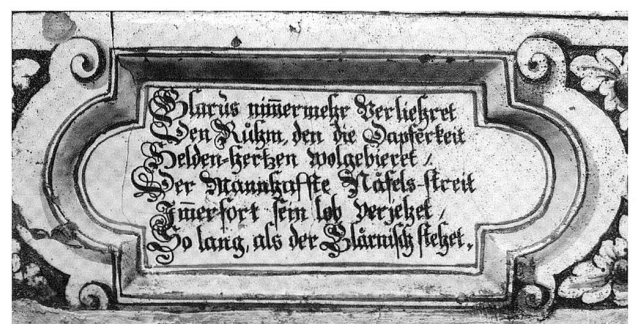 Glarus nim̄ermehr Verliehret
Den Růhm, den die Dapferkeit
Helden-hertzen wolgebieret /
Der Mannhaffte Näfels-streit
Im̄erfort sein lob Verjehet /
So lang, als der Glärnisch stehet.